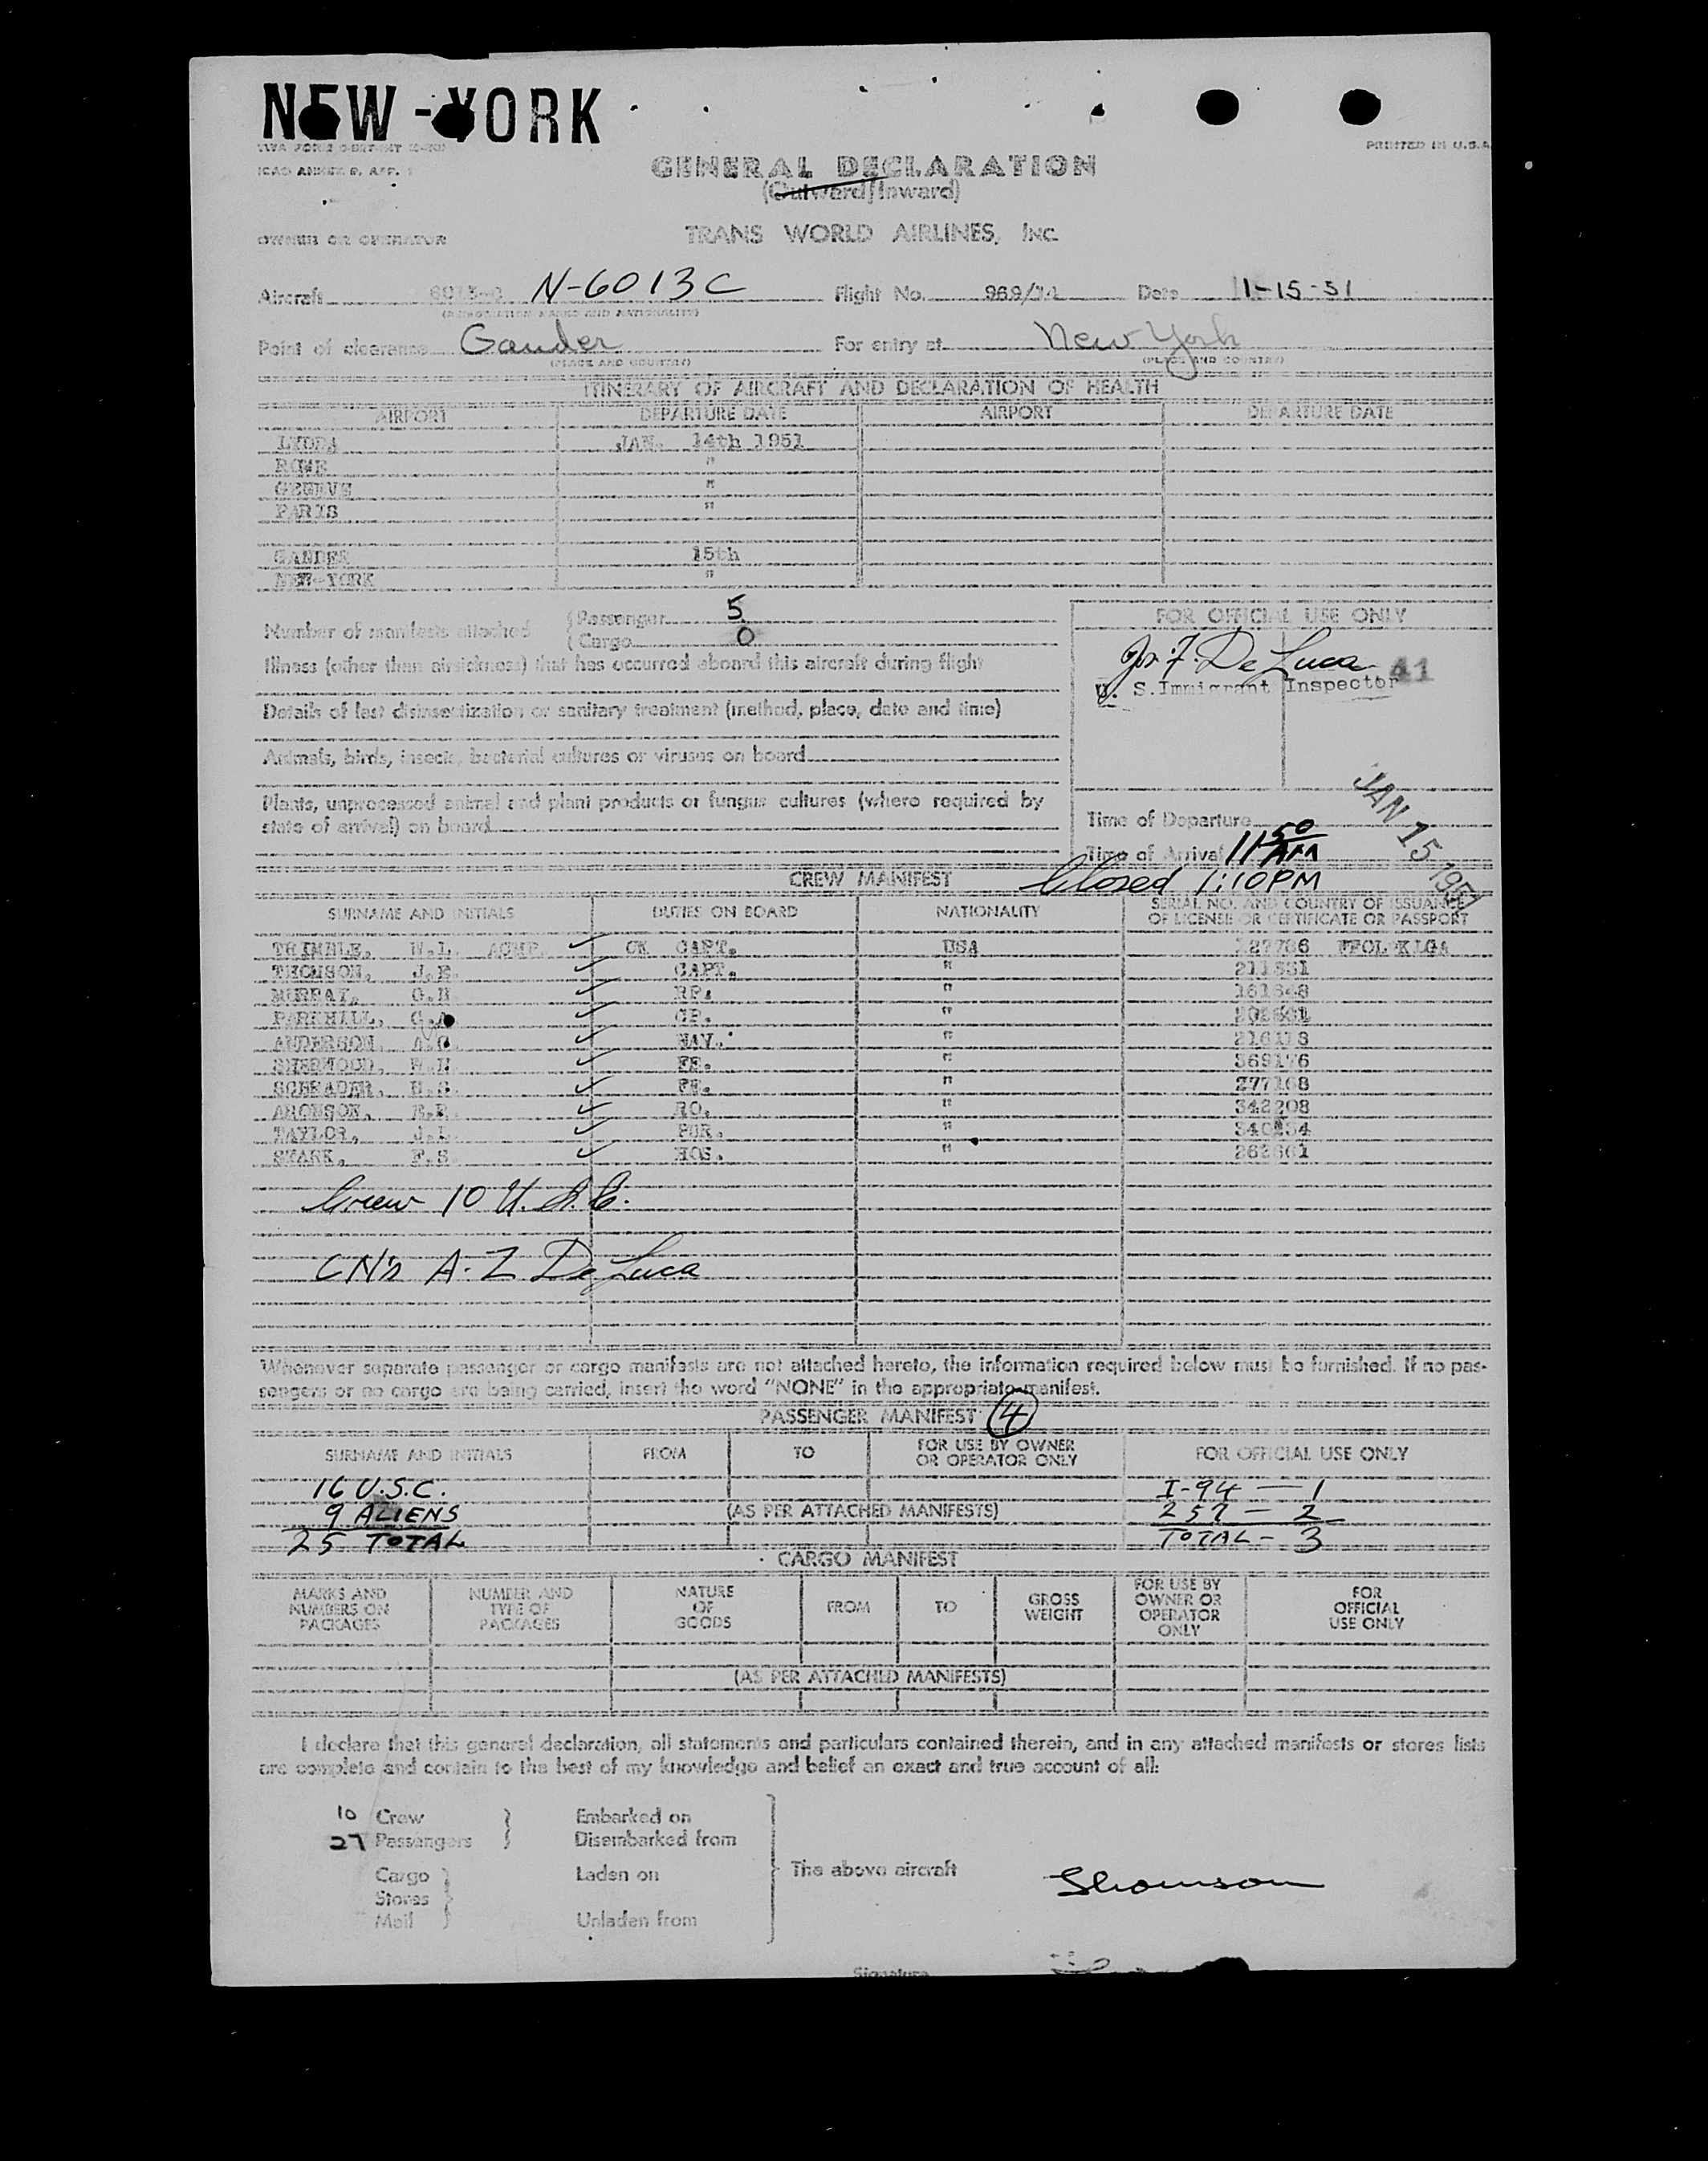 NEW-YORK
ICAO ANNEX 9, APP. 1
PRINTED IN U.S.A.
GENERAL DECLARATION
(Outward/Inward)
OWNER OR OPERATOR TRANS WORLD AIRLINES, INC.
Aircraft N-6013C Flight No. 969/14 Date 1-15-51
(REGISTRATION MARKS AND NATIONALITY)
Point of clearance Gander For entry at New York
(PLACE AND COUNTRY) (PLACE AND COUNTRY)
ITINERARY OF AIRCRAFT AND DECLARATION OF HEALTH
AIRPORT DEPARTURE DATE AIRPORT DEPARTURE DATE
LYDDA JAN. 14th 1951
ROME "
GENEVE "
PARIS "
GANDER 15th
NEW-YORK "
Number of manifests attached
Passenger 5
Cargo 0
Illness (other than airsickness) that has occurred aboard this aircraft during flight
Details of last disinsectization or sanitary treatment (method, place, date and time)
Animals, birds, insects, bacterial cultures or viruses on board
Plants, unprocessed animal and plant products or fungus cultures (where required by
state of arrival) on board
FOR OFFICIAL USE ONLY
De Luca 41
U. S. Immigrant Inspector
Time of Departure
Time of Arrival 11 50 AM
JAN 15 1951
Closed 1:10 PM
CREW MANIFEST
SURNAME AND INITIALS DUTIES ON BOARD NATIONALITY SERIAL NO. AND COUNTRY OF ISSUANCE
OF LICENSE OR CERTIFICATE OR PASSPORT
TRIMBLE, CK CAPT. USA
THOMSON, J.E. CAPT. "
MURRAY, G.H RP. "
PARKHILL, G.A CP. "
ANDERSON A.C. NAV. "
SHERWOOD, FE. " 369176
SCHRADER, FE. " 277168
ARONSON, RO. " 342208
TAYLOR, J.L PUR. "
STARK, F.S HOS. "
Crew 10 U.S.C.
A-Z De Luca
Whenever separate passenger or cargo manifests are not attached hereto, the information required below must be furnished. If no pas-
sengers or no cargo are being carried, insert the word "NONE" in the appropriate manifest.
PASSENGER MANIFEST 4
SURNAME AND INITIALS FROM TO FOR USE BY OWNER
OR OPERATOR ONLY FOR OFFICIAL USE ONLY
16 U.S.C. I-94 — 1
9 ALIENS (AS PER ATTACHED MANIFESTS) 257 — 2
25 TOTAL TOTAL - 3
CARGO MANIFEST
MARKS AND
NUMBERS ON
PACKAGES
NUMBER AND
TYPE OF
PACKAGES
NATURE
OF
GOODS
FROM
TO
GROSS
WEIGHT
FOR USE BY
OWNER OR
OPERATOR
ONLY
FOR
OFFICIAL
USE ONLY
(AS PER ATTACHED MANIFESTS)
I declare that this general declaration, all statements and particulars contained therein, and in any attached manifests or stores lists
are complete and contain to the best of my knowledge and belief an exact and true account of all:
10 Crew Embarked on
27 Passengers Disembarked from
Cargo Laden on The above aircraft
Stores
Mail Unladen from
Thomson
Signature